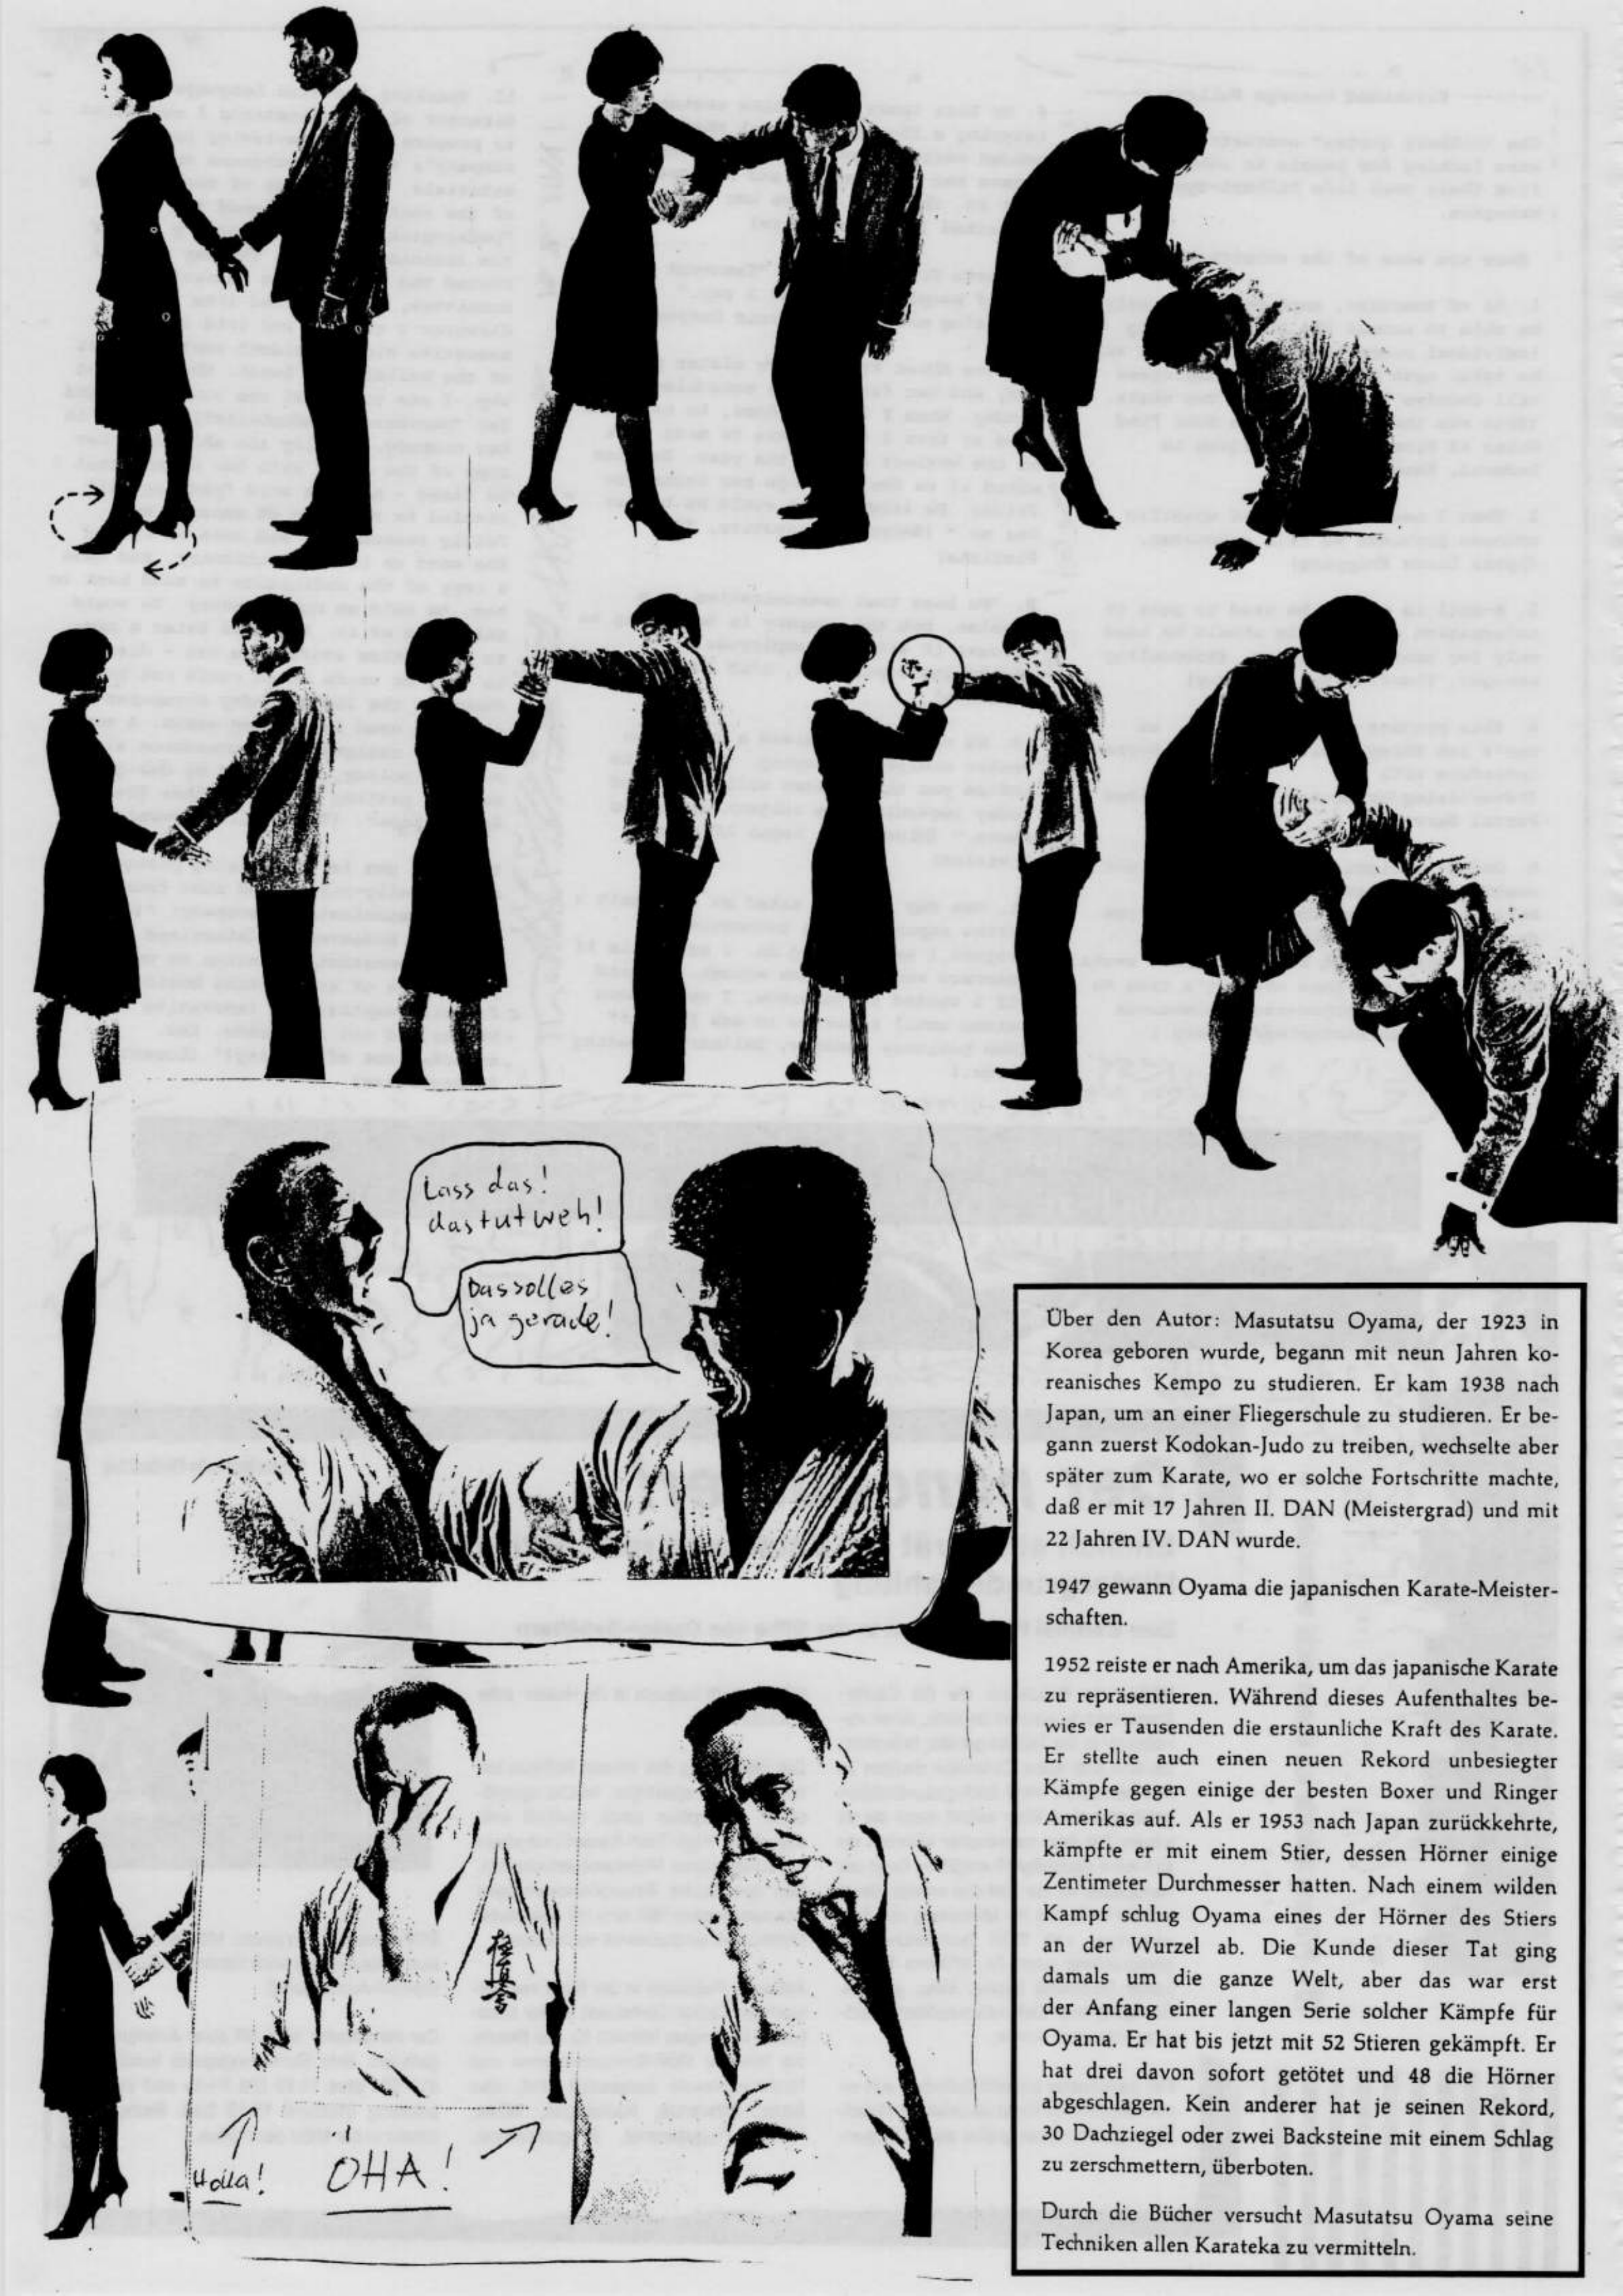 Lass das!
das tut weh!
Das soll es
ja gerade!
Über den Autor: Masutatsu Oyama, der 1923 in
Korea geboren wurde, begann mit neun Jahren ko-
reanisches Kempo zu studieren. Er kam 1938 nach
Japan, um an einer Fliegerschule zu studieren. Er be-
gann zuerst Kodokan-Judo zu treiben, wechselte aber
später zum Karate, wo er solche Fortschritte machte,
daß er mit 17 Jahren II. DAN (Meistergrad) und mit
22 Jahren IV. DAN wurde.
1947 gewann Oyama die japanischen Karate-Meister-
schaften.
1952 reiste er nach Amerika, um das japanische Karate
zu repräsentieren. Während dieses Aufenthaltes be-
wies er Tausenden die erstaunliche Kraft des Karate.
Er stellte auch einen neuen Rekord unbesiegter
Kämpfe gegen einige der besten Boxer und Ringer
Amerikas auf. Als er 1953 nach Japan zurückkehrte,
kämpfte er mit einem Stier, dessen Hörner einige
Zentimeter Durchmesser hatten. Nach einem wilden
Kampf schlug Oyama eines der Hörner des Stiers
an der Wurzel ab. Die Kunde dieser Tat ging
damals um die ganze Welt, aber das war erst
der Anfang einer langen Serie solcher Kämpfe für
Oyama. Er hat bis jetzt mit 52 Stieren gekämpft. Er
hat drei davon sofort getötet und 48 die Hörner
abgeschlagen. Kein anderer hat je seinen Rekord,
30 Dachziegel oder zwei Backsteine mit einem Schlag
zu zerschmettern, überboten.
Durch die Bücher versucht Masutatsu Oyama seine
Techniken allen Karateka zu vermitteln.
Holla!
OHA!